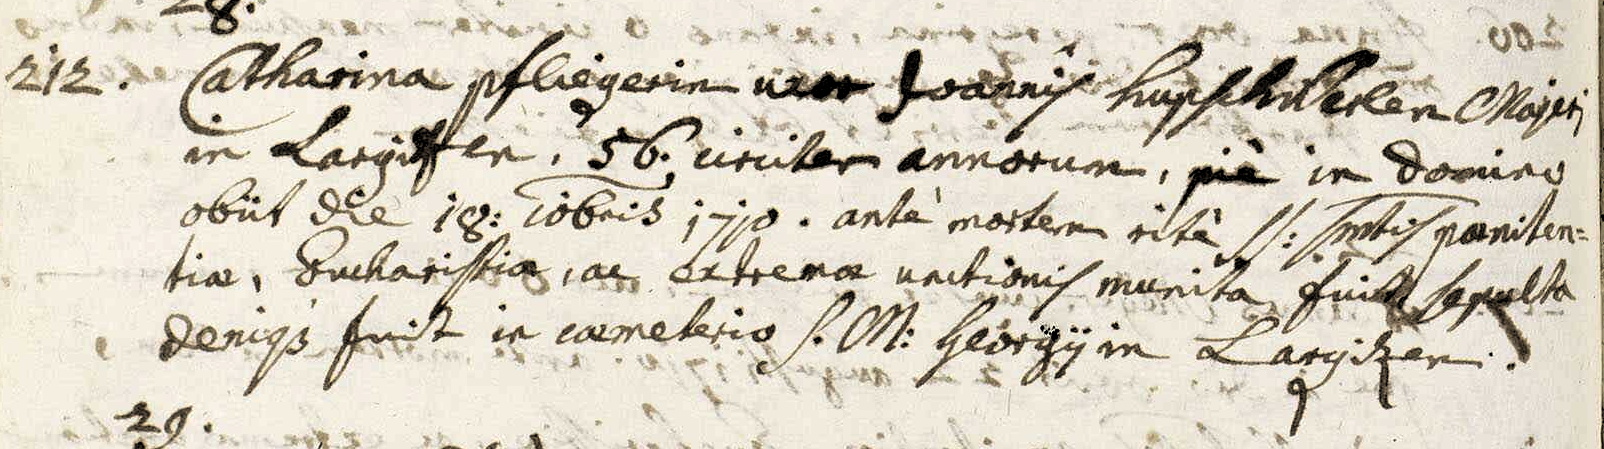 28.
212. Catharina pfliegerin uxor Joannis hupschwerlen Majeri
in Largitzen, 56. circiter annorum, piè in domino
obiit die 18: Xobris 1710. antè mortem ritè SS: Sm̅tis pœniten=
tiæ, Eucharistiæ, ac extremæ unctionis munita fuit sepulta
deniqꝫ fuit in cœmeterio S. M: Georgÿ in Largitzen.
29.